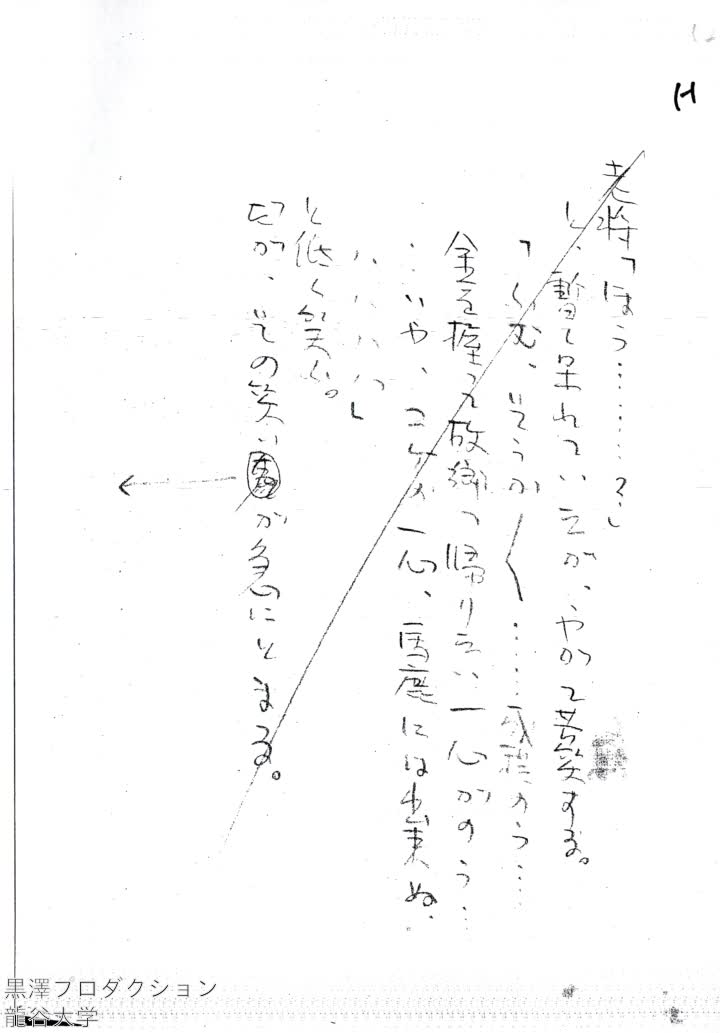 H
老将「ほう………?」
と、暫く呆れていたが、やがて苦笑する。
「ふむ、そうか〱……成程のう……
金を握って故郷へ帰りたい一心かのう…
…いや、コケの一心、馬鹿には出来ぬ…
ハハハハ」
と低く笑ふ。
だが、その笑いが急にとまる。
黒澤プロダクション
龍谷大学